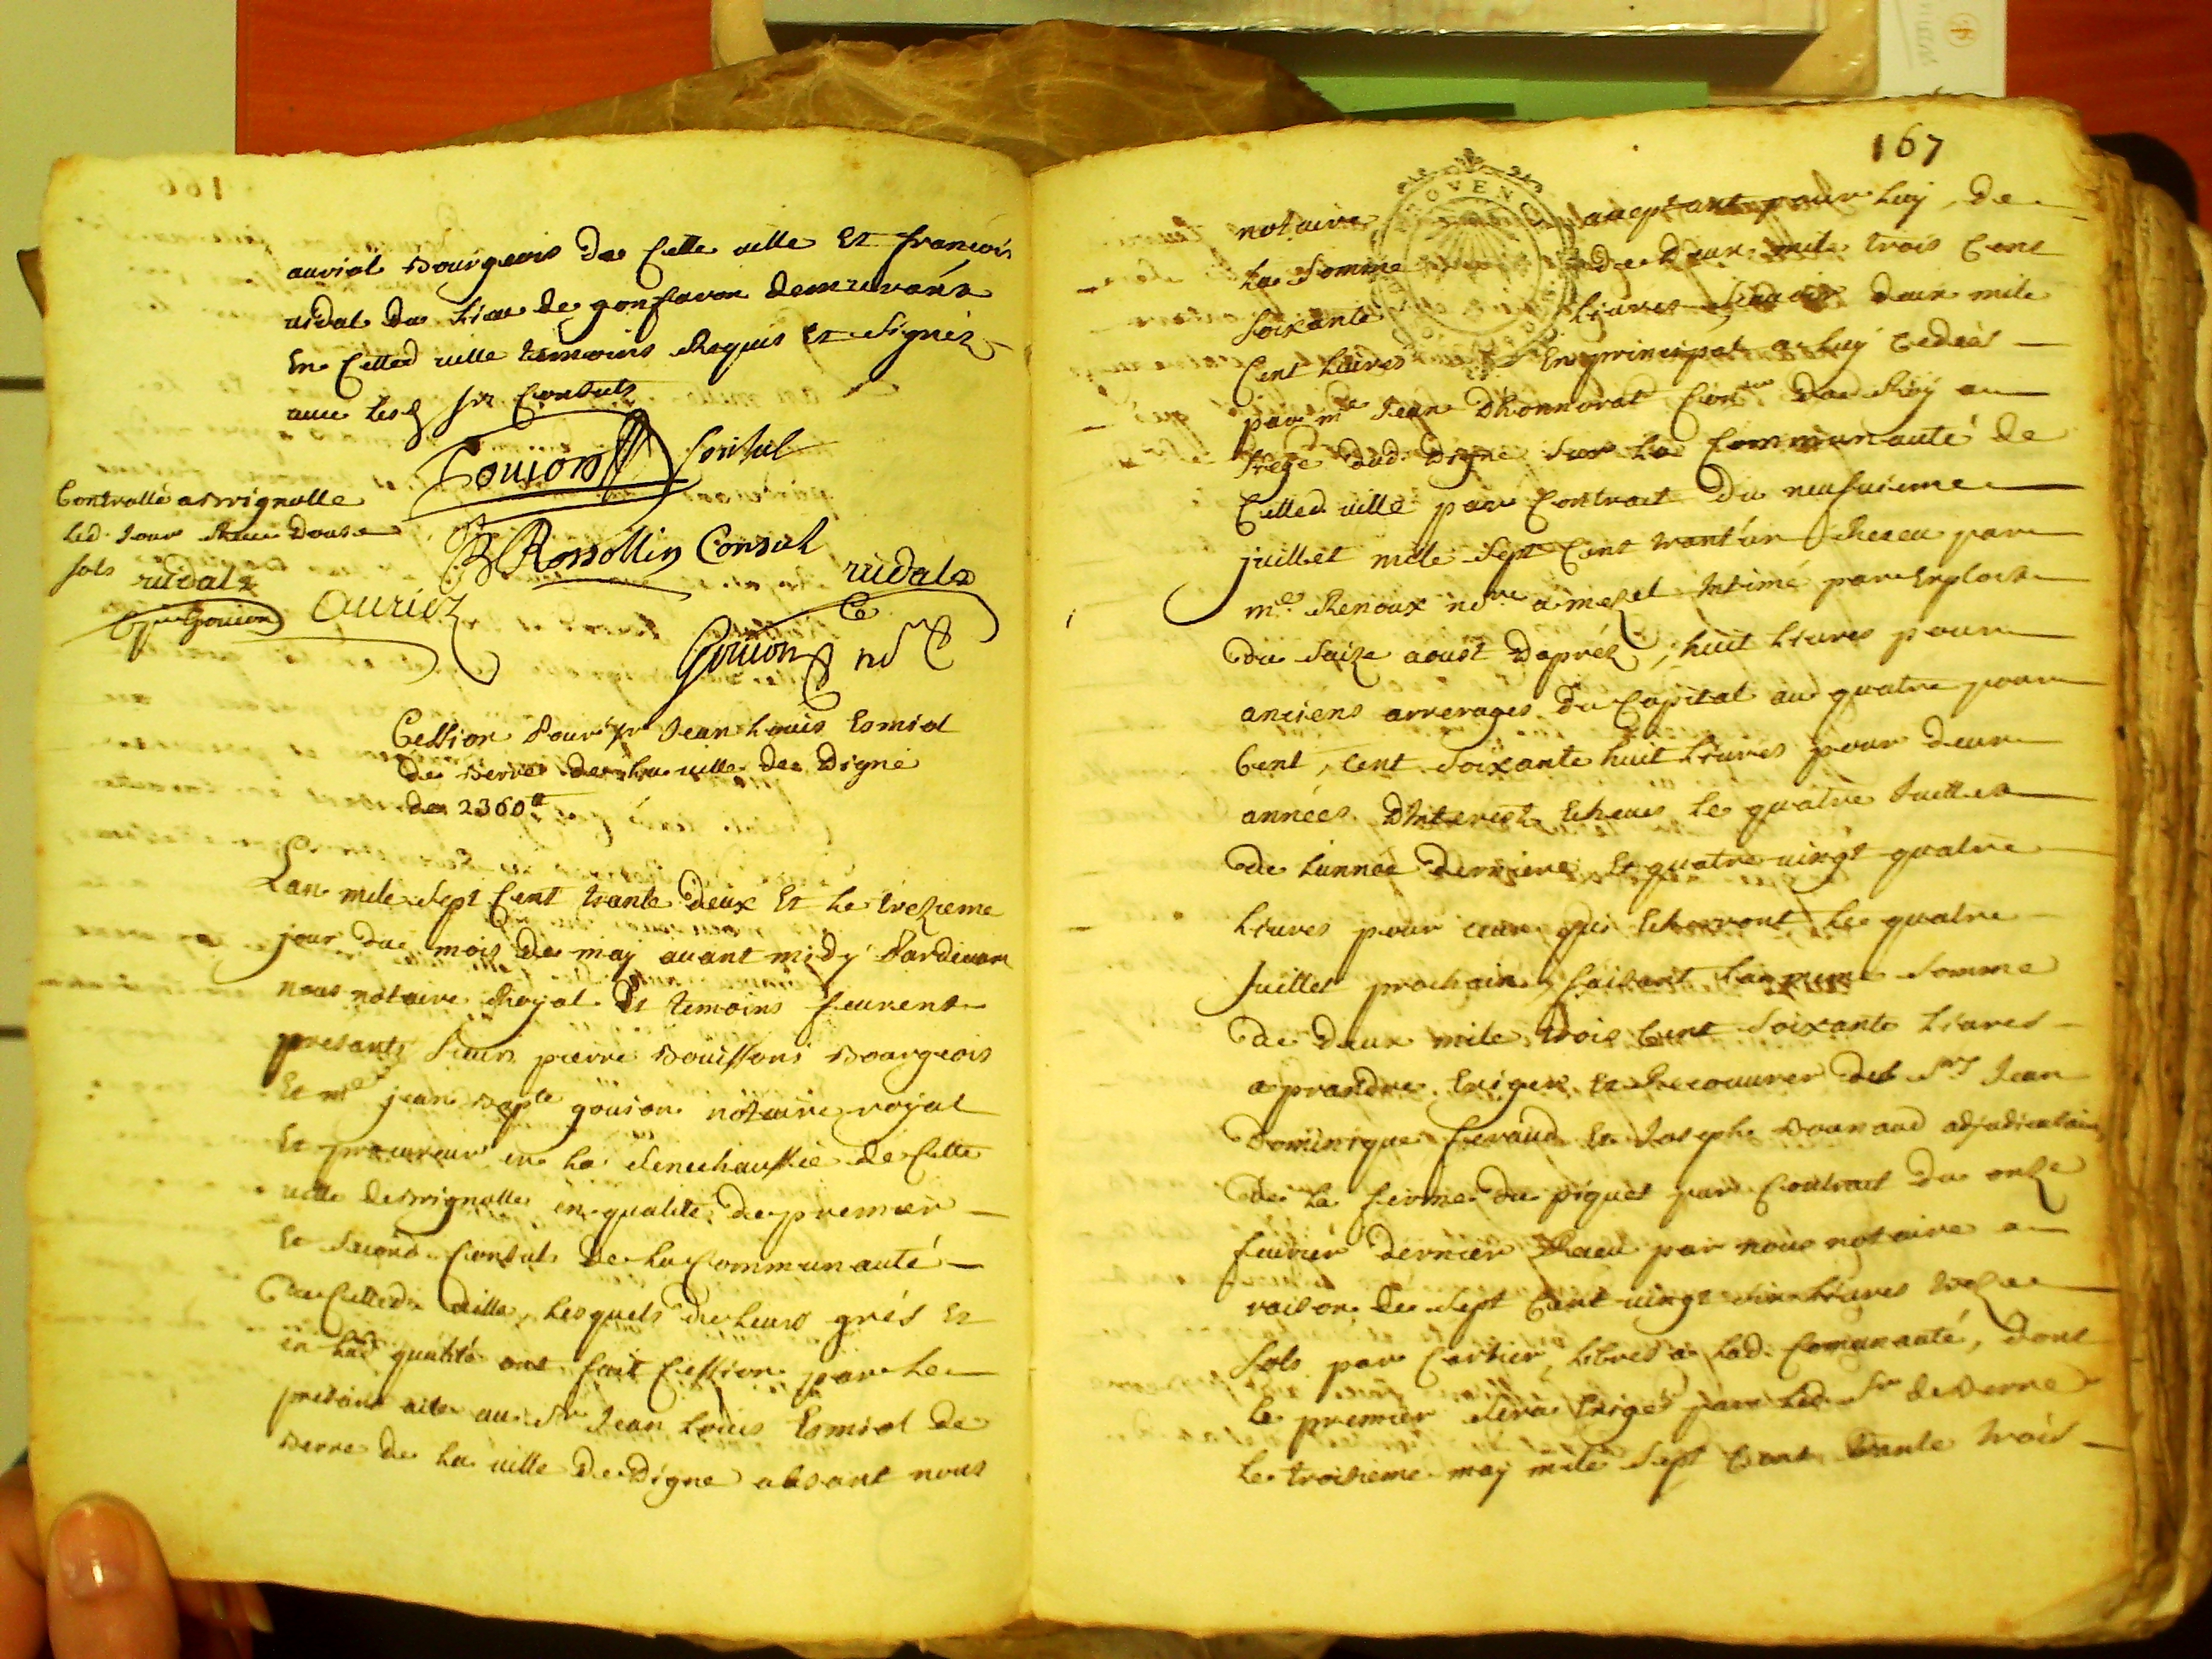 auriol Bourgeois de Cette ville Et francois
vidal du lieu de gonfaron demeurant
En Cetted ville temoins Requis Et Signés
avec lesd srs Consuls
Goujon Consul
B Rossollin Consul
Controllé a Brignolle
led. Jour Reçeu Douse
sols vidal
Goujon
Auriol
vidal
Goujon nore
Cession Pour sr Jean Louis Esmiol
de Berre de la ville de Digne
de 2360 tt
Lan mile Sept Cent trante deux Et le trezieme
jour du mois de may avant midy Pardevant
nous notaire Royal Et temoins feurent
presants Sieurs pierre Bouissons Bourgeois
Et me jean Bapte goujon notaire royal
Et procureur en la Senechaussée de Cette
ville de Brignolle en qualité de premier
Et Second Consuls de la Communauté
de Cetted. ville, lesquels de leurs grés Et
en lad qualité ont fait Cession par le
presant acte au Sr Jean Louis Esmiol de
Berre de la ville de Digne absant nous
167
PROVENCE
notaire acceptant pour luy, de
la Somme de Deux mile trois Cent
Soixante livres Scavoir deux mile
Cent livres En principal a luy cedées
par me Jean D'honnorat Coner du Roy au
Siege dud. Digne Sur la Communauté de
Cetted. ville par Contract du neufvieme
juillet mile Sept Cent trant'un Receu par
me Renoux nore a mezel Intimé par Exploit
du Saize aoust D'aprés; huit livres pour
anciens arrerages du Capital au quatre pour
Cent, Cent Soixante huit livres pour deux
années D'Interest Echeues le quatre Juillet
de l'année derniere Et quatre vingt quatre
livres pour ceux qui Echerront le quatre
Juillet prochain, faisant la somme
de Deux mile trois Cent Soixante livres
a prandre Exiger Et Recouvrer des Srs Jean
Dominique feraud Et Joseph adjudicataires
de la ferme du piquet par Contract du onze
fevrier dernier Receu par nous notaire a
raison de Sept Cent vingt livres treze
Sols par Cartier, libres a lad. Comunauté, dont
le premier Sera Exigé par led. Sr de Berre
le troisieme may mile Sept Cent trante trois